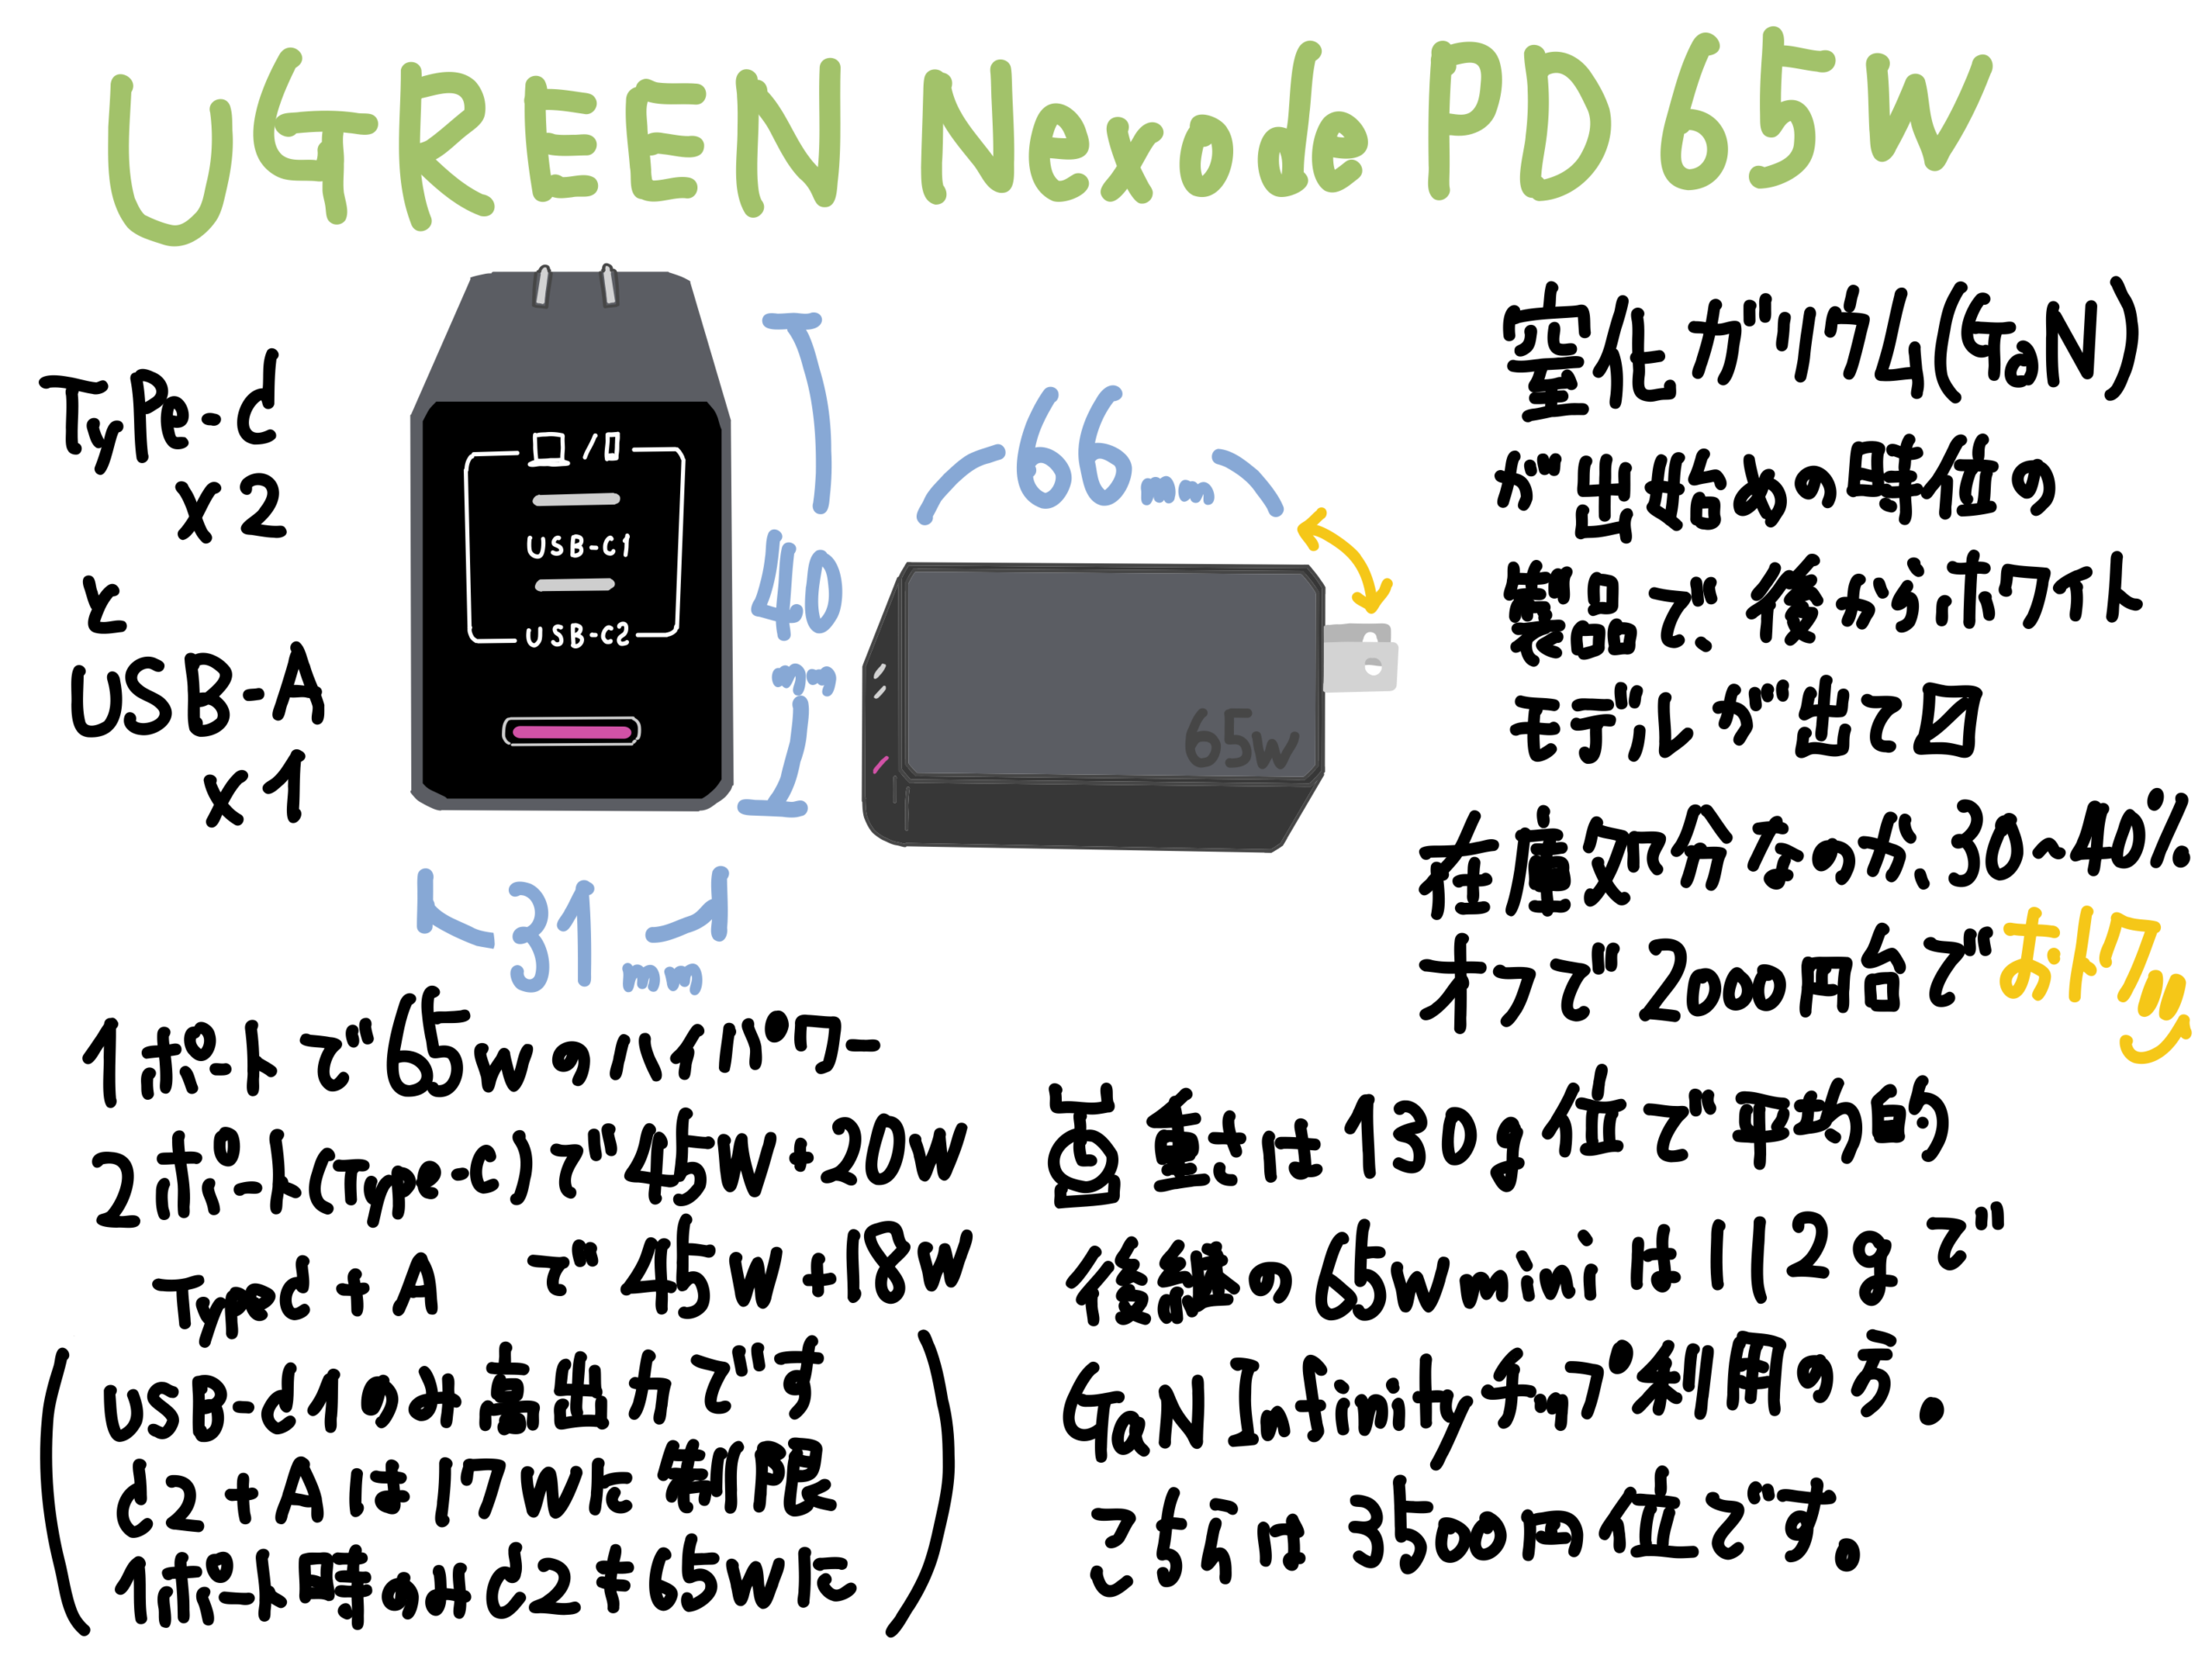 UGREEN Nexode PD 65W
Type-C
x2
と
USB-A
x1
USB-C1
USB-C2
40
mm
31mm
66mm
65W
窒化ガリウム(GaN)
が出始めの時位の
製品で、後からホワイト
モデルが出て
在庫処分なのか、30~40%
オフで2000円台でおトク
1ポートで65Wのハイパワー
2ポート(Type-C)で45W+20W
TypeC+A で45W+18W
USB-C1のみ高出力です
C2+Aは17Wに制限
1ポート時のみC2も65Wに
重さは130g位で平均的
後継の65Wminiは112gで
GaN Infinityチップ利用の方。
こちらは3500円位です。